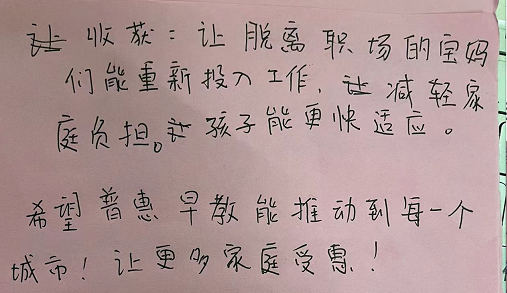 收获：让脱离职场的宝妈
们能重新投入工作，减轻家
庭负担。孩子能更快适应。
希望普惠早教能推动到每一个
城市！让更多家庭受惠！